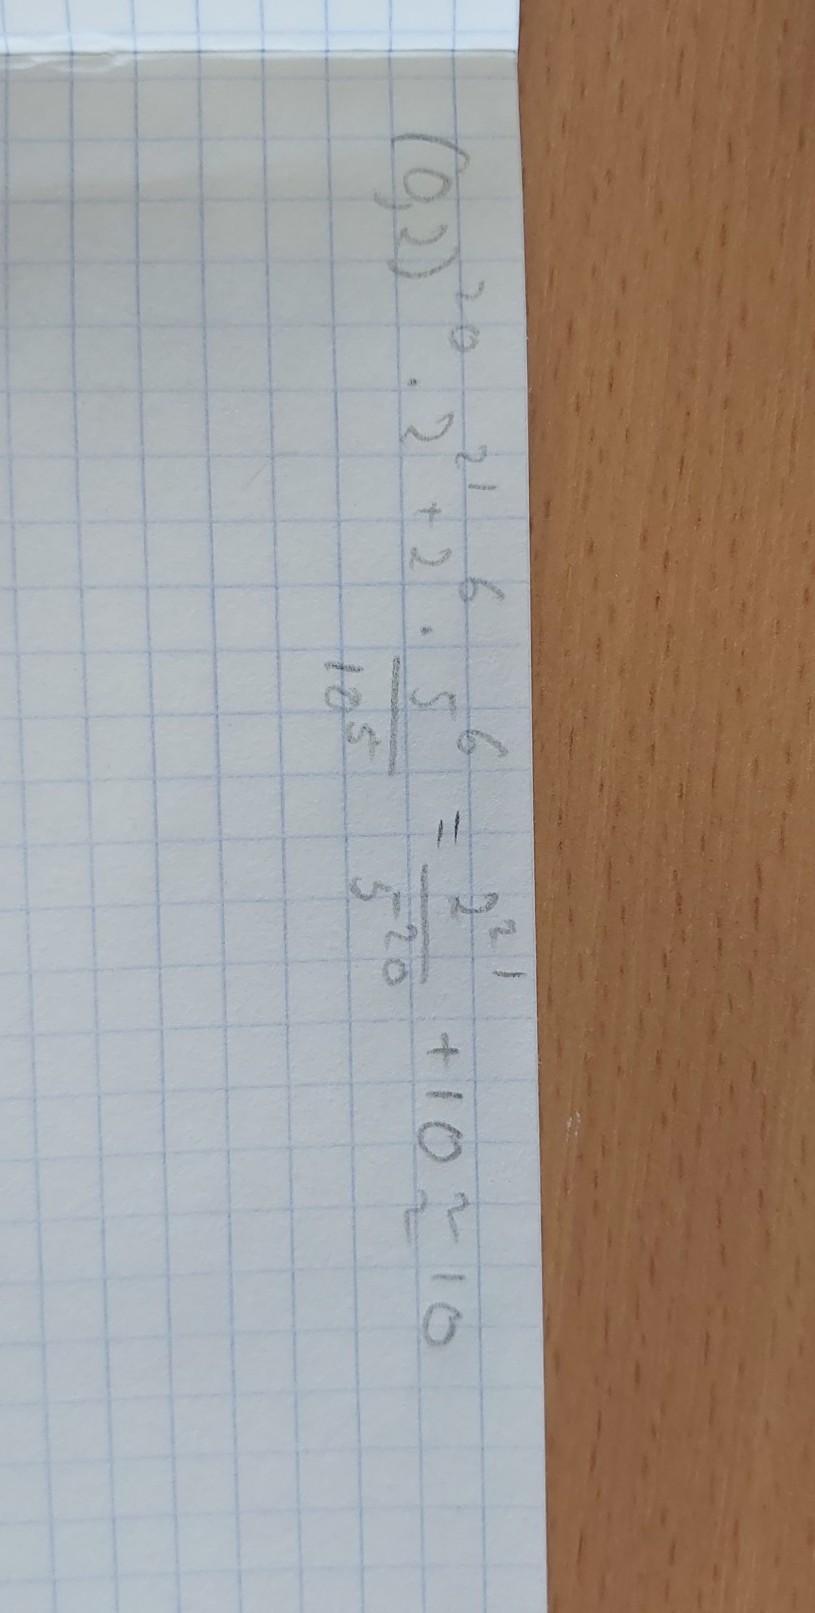 (0,2)²⁰ · 2²¹ + 2⁶ · 5⁶/10⁵ = 2²¹/5²⁰ + 10 ≈ 10